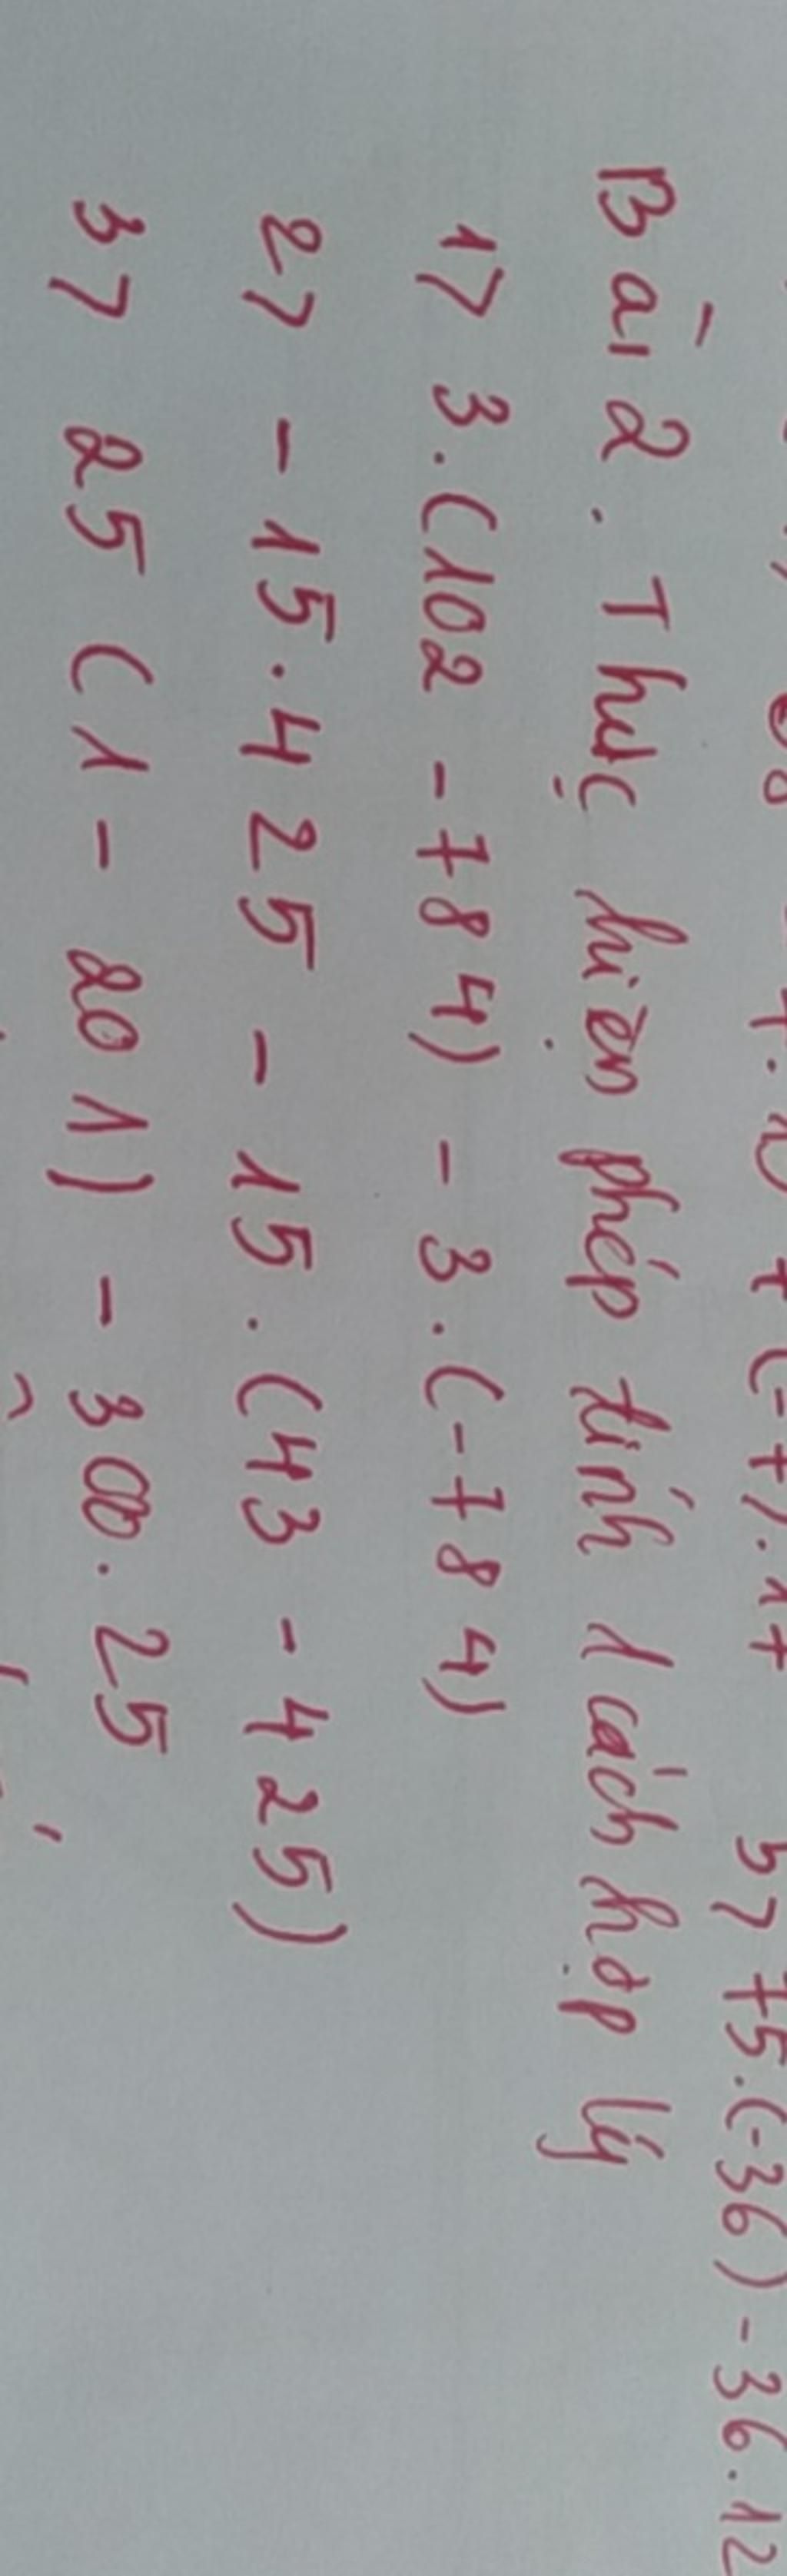 57 75.(-36) - 36.12
Bài 2. Thực hiện phép tính 1 cách hợp lý
17 3.(102 - 784) - 3.(-784)
27 - 15.425 - 15.(43 - 425)
37 25 (1 - 201) - 300.25